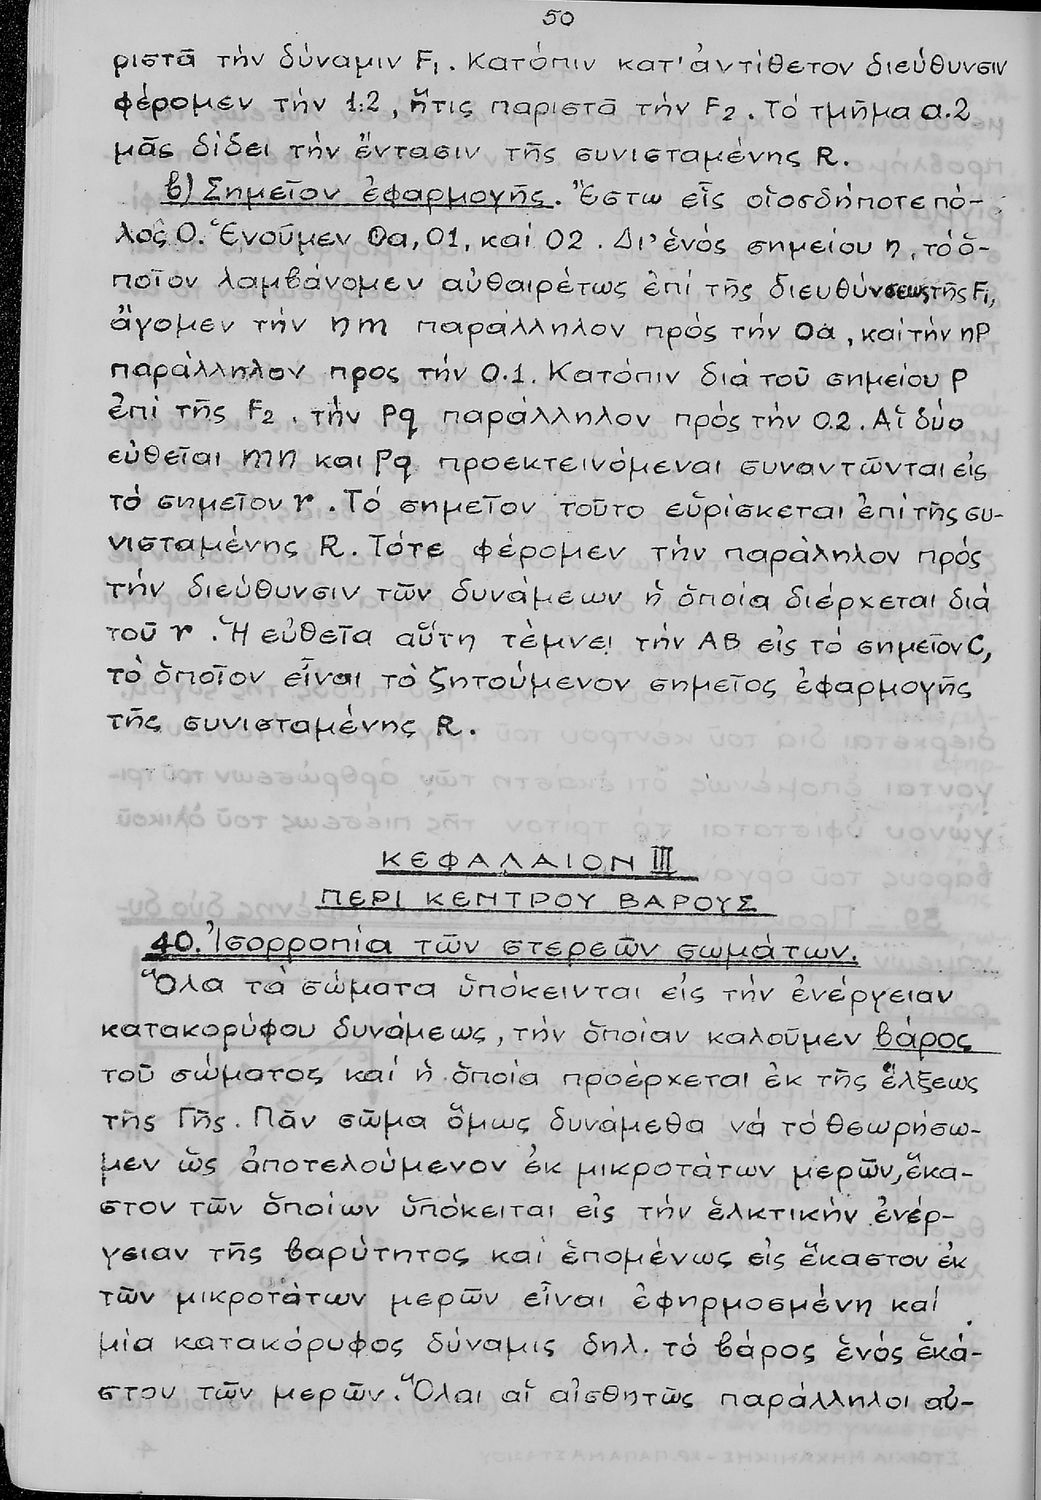 50
ριστᾶ τήν δύναμιν F₁. Κατόπιν κατ' ἀντίθετον διεύθυνσιν
φέρομεν τήν 1:2, ἥτις παριστᾶ τήν F₂. Τό τμῆμα α.2
μᾶς δίδει τήν ἔντασιν τῆς συνισταμένης R.
β) Σημεῖον ἐφαρμογῆς. Ἔστω εἷς οἱοσδήποτε πό-
λος Ο. Ἑνοῦμεν Οα, Ο1, καί Ο2. Δι' ἑνός σημείου η, τό ὁ-
ποῖον λαμβάνομεν αὐθαιρέτως ἐπί τῆς διευθύνσεως τῆς F₁,
ἄγομεν τήν ηm παράλληλον πρός τήν Οα, καί τήν ηP
παράλληλον προς τήν Ο.1. Κατόπιν διά τοῦ σημείου P
ἐπί τῆς F₂, τήν Pq παράλληλον πρός τήν Ο.2. Αἱ δύο
εὐθεῖαι mη και Pq προεκτεινόμεναι συναντῶνται εἰς
τό σημεῖον r. Τό σημεῖον τοῦτο εὑρίσκεται ἐπί τῆς συ-
νισταμένης R. Τότε φέρομεν τήν παράληλον πρός
τήν διεύθυνσιν τῶν δυνάμεων ἡ ὁποία διέρχεται διά
τοῦ r. Ἡ εὐθεῖα αὕτη τέμνει τήν ΑΒ εἰς τό σημεῖον C,
τὸ ὁποῖον εἶναι τὸ ζητούμενον σημεῖος ἐφαρμογῆς
τῆς συνισταμένης R.
ΚΕΦΑΛΑΙΟΝ III
ΠΕΡΙ ΚΕΝΤΡΟΥ ΒΑΡΟΥΣ
40. Ἰσορροπία τῶν στερεῶν σωμάτων.
Ὅλα τὰ σώματα ὑπόκεινται εἰς τήν ἐνέργειαν
κατακορύφου δυνάμεως, τήν ὁποίαν καλοῦμεν βάρος
τοῦ σώματος καί ἡ ὁποία προέρχεται ἐκ τῆς ἕλξεως
τῆς Γῆς. Πᾶν σῶμα ὅμως δυνάμεθα νά τό θεωρήσω-
μεν ὡς ἀποτελούμενον ἐκ μικροτάτων μερῶν, ἕκα-
στον τῶν ὁποίων ὑπόκειται εἰς τήν ἑλκτικήν ἐνέρ-
γειαν τῆς βαρύτητος καί ἑπομένως εἰς ἕκαστον ἐκ
τῶν μικροτάτων μερῶν εἶναι ἐφηρμοσμένη καί
μία κατακόρυφος δύναμις δηλ. τό βάρος ἑνός ἑκά-
στου τῶν μερῶν. Ὅλαι αἱ αἰσθητῶς παράλληλοι αὐ-